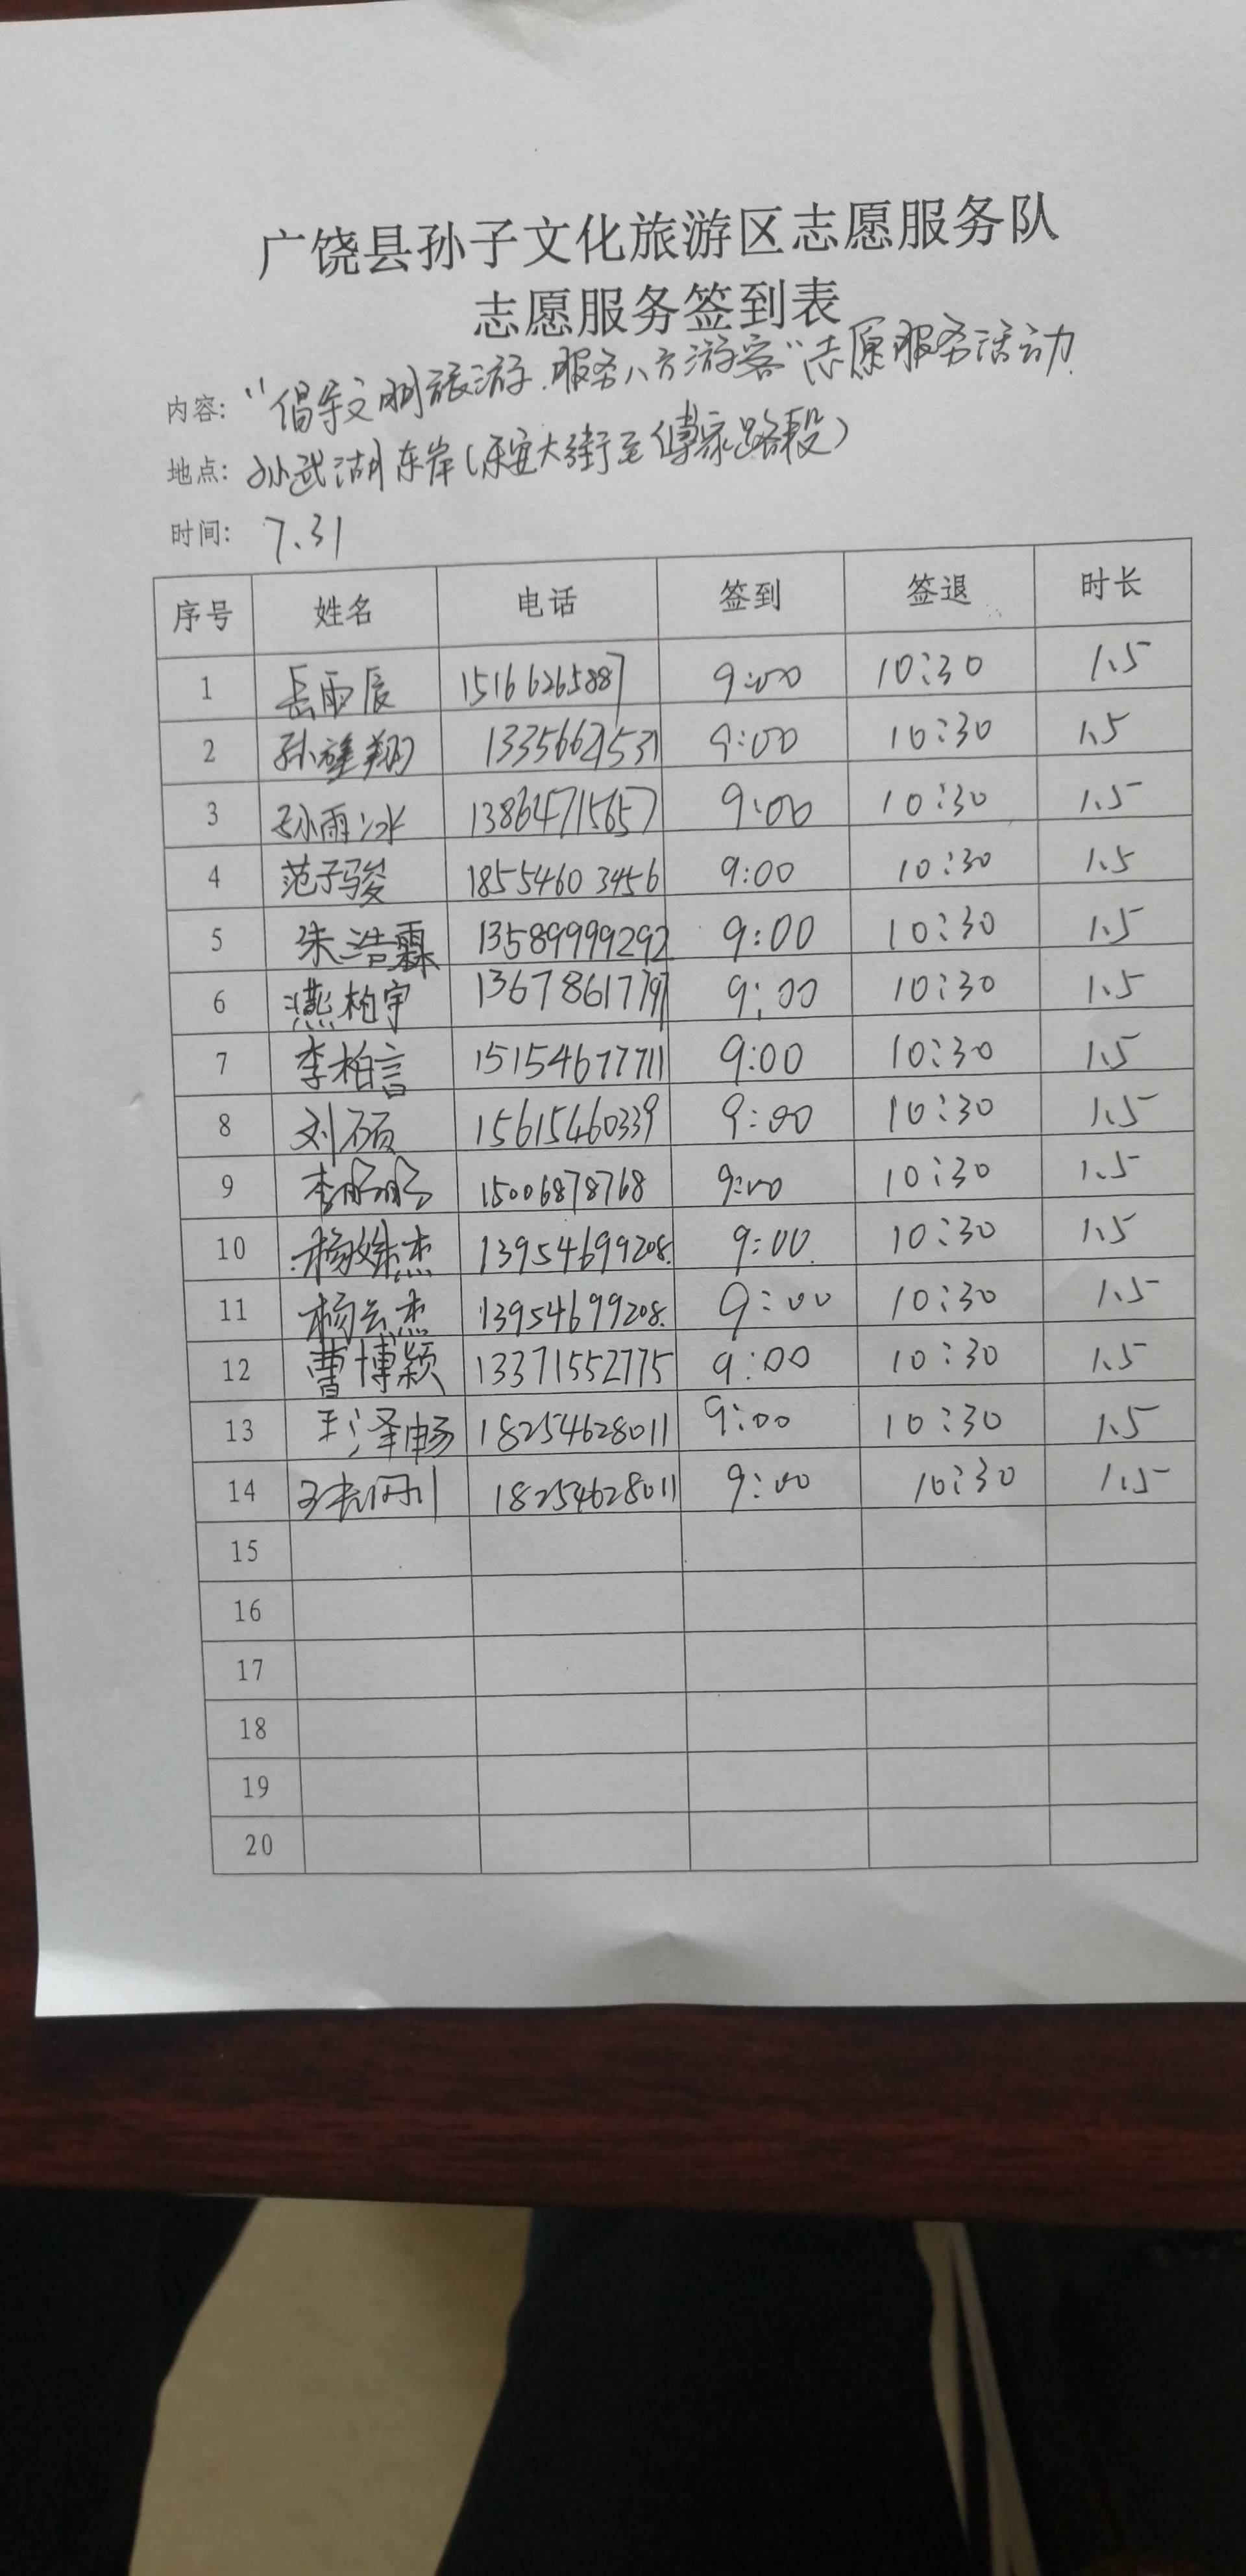 广饶县孙子文化旅游区志愿服务队
志愿服务签到表
内容: "倡导文明旅游.服务八方游客"志愿服务活动.
地点: 孙武湖东岸(乐安大街至傅家路段)
时间: 7.31
序号 姓名 电话 签到 签退 时长
1 岳雨辰 15166265887 9:00 10:30 1.5
2 孙 翔 9:00 10:30 1.5
3 孙雨冰 13864715657 9:00 10:30 1.5
4 范子骏 18554603456 9:00 10:30 1.5
5 朱浩霖 13589999292 9:00 10:30 1.5
6 燕柏宇 13678617797 9:00 10:30 1.5
7 李柏言 15154677711 9:00 10:30 1.5
8 刘硕 15615460339 9:00 10:30 1.5
9 李 15006878768 9:00 10:30 1.5
10 杨 杰 13954699208. 9:00. 10:30 1.5
11 杨云杰 13954699208. 9:00 10:30 1.5
12 曹博颖 13371552775 9:00 10:30 1.5
13 王泽畅 18254628011 9:00 10:30 1.5
14 18254628011 9:00 10:30 1.5
15
16
17
18
19
20